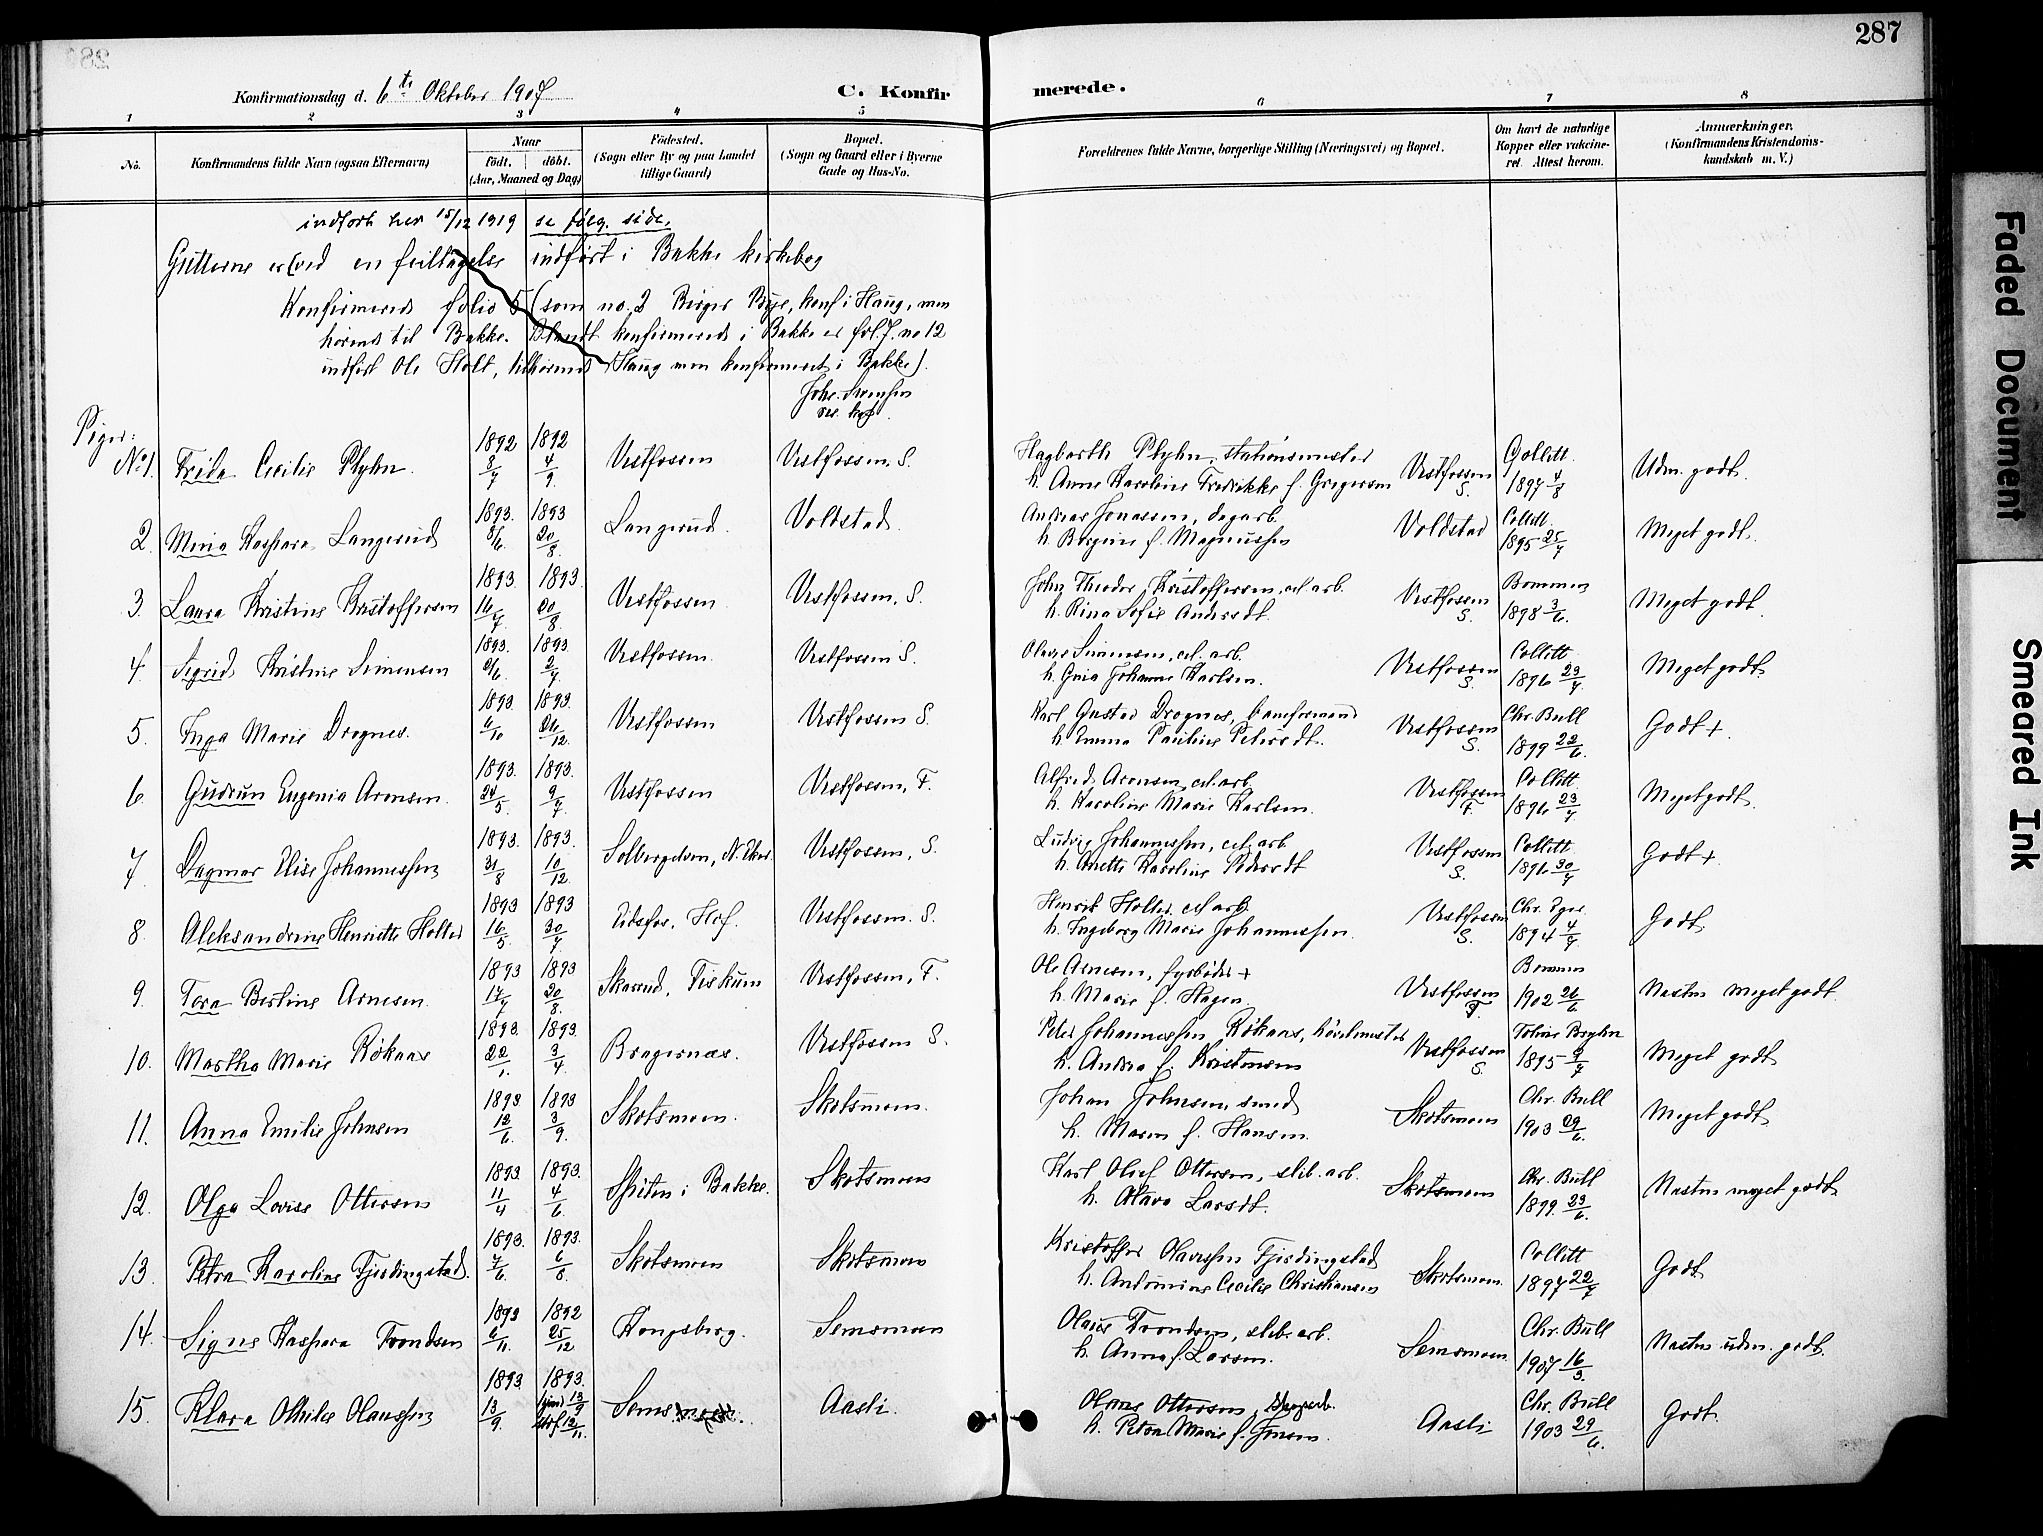 287
Konfirmationsdag d. 6te Oktober 1907
C. Konfirmerede.
1 2 3 4 5 6 7 8
No.
Konfirmandens fulde Navn (ogsaa Efternavn)
Naar
født. døbt.
(Aar, Maaned og Dag)
Fødested.
(Sogn eller By og paa Landet
tillige Gaard)
Bopæl.
(Sogn og Gaard eller i Byerne
Gade og Hus-No.
Forældrenes fulde Navne, borgerlige Stilling (Næringsvei) og Bopæl.
Om havt de naturlige
Kopper eller vakcine-
ret. Attest herom.
Anmærkninger.
(Konfirmandens Kristendoms-
kundskab m. V.)
indført her 15/12 1919 se følg. side.
Gutterne er (ved en feiltagelse indført i Bakke kirkebog
Konfirmerede folio 5 (som no. 2 Birger Bye, konf i Haug, men
hørende til Bakke. Blandt konfirmerede i Bakke er fol. 7. no 12
indført Ole Holt, tilhørende Haug men konfirmeret i Bakke).
Piger:
No 1. Frida Cecilie Plyhn. 1892 8/7 1892 4/9 Vestfossen Vestfossen. S. Hagbarth Plyhn, stationsmester h. Anne Karoline Fredrikke f. Gregersen Vestfossen S. Collett 1897 4/8 Udm. godt.
2. Mina Kaspara Langerud 1893. 8/6. 1893 20/8. Langerud. Voldstad. Andreas Jonassen, dagarb. h. Bergine f. Magnussen Voldstad Collett. 1895 25/7 Meget godt.
3. Laura Kristine Kristoffersen 1893. 16/7 1893. 20/8. Vestfossen Vestfossen, S. John Theodor Kristoffersen, cel. arb. h. Rina Sofie Andersdt. Vestfossen S. Bommen 1898 3/6. Meget godt.
4. Sigrid Kristine Simensen 1893. 2/6. 1893. 2/7. Vestfossen Vestfossen S. Olaves Simensen, cel. arb. h. Gina Johanne Karlsen. Vestfossen S. Collett 1896 23/7. Meget godt
5. Inga Marie Drognes. 1893. 6/10 1893. 26/12. Vestfossen Vestfossen S. Karl Gustav Drognes, baneformand h. Emma Pauline Petersdt. Vestfossen S. Chr. Bull 1899 22/6. Godt +.
6. Gudrun Eugenia Aronsen. 1893. 24/5. 1893. 9/7. Vestfossen Vestfossen, F. Alfred Aronsen, cel. arb. h. Karoline Marie Karlsen. Vestfossen F. Collett 1896 23/7 Meget godt.
7. Dagmar Elise Johannessen 1893. 31/8 1893. 10/12. Solbergelven, N. Eker. Vestfossen, S. Ludvig Johannessen, cel. arb. h. Anette Karoline Pedersdt Vestfossen S. Collett. 1896 30/7 Godt +.
8. Aleksandrine Henriette Holter 1893 16/5. 1893 30/7 Eidsfos, Hof. Vestfossen. S. Henrik Holter, cel. arb. h. Ingeborg Marie Johannessen. Vestfossen S. Chr. Eger 1894 4/7 Godt
9. Tora Bertine Arnesen. 1893 17/7 1893 20/8. Skarrud, Fiskum Vestfossen, F. Ole Arnesen, fyrbøder + h. Marie f. Hagen. Vestfossen F. Bommen 1902 26/6. Næsten meget godt.
10. Martha Marie Røkaas 1893. 22/1. 1893. 3/4. Bragernæs. Vestfossen S. Peter Johannessen Røkaas, høvlmester h. Andrea f. Kristensen Vestfossen S. 1895 9/7 Meget godt
11. Anna Emilie Johnsen 1893 12/6. 1893 3/9. Skotsmoen. Skotsmoen. Johan Johnsen, smed h. Maren f. Hansen. Skotsmoen Chr. Bull 1903 29/6. Meget godt
12. Olga Lovise Ottersen 1893 11/4 1893. 4/6. i Bakke. Skotsmoen Karl Oluf Ottersen, slib. arb. h. Olava Larsdt. Skotsmoen Chr. Bull 1899. 23/6. Næsten meget godt
13. Petra Karoline Fjerdingstad. 1893. 7/6. 1893. 6/8. Skotsmoen Skotsmoen Kristoffer Olavesen Fjerdingstad h. Andomine Cecilie Christiansen Skotsmoen. Collett 1897 22/7 Godt
14. Signe Kaspara Trondsen 1893 6/11. 1892 25/12. Kongsberg. Semsmoen Olaus Trondsen, slib. arb. h. Anna f. Larsen. Semsmoen. Chr. Bull 1907 16/3. Næsten udm. godt.
15. Klara Othilie Olaussen 1893. 13/9. 1893. 13/9 12/11. Aasli. Olaus Ottersen, h. Petra Marie f. Jensen. Aasli Chr. Bull 1903 29/6. Godt.
Faded Document
Smeared Ink